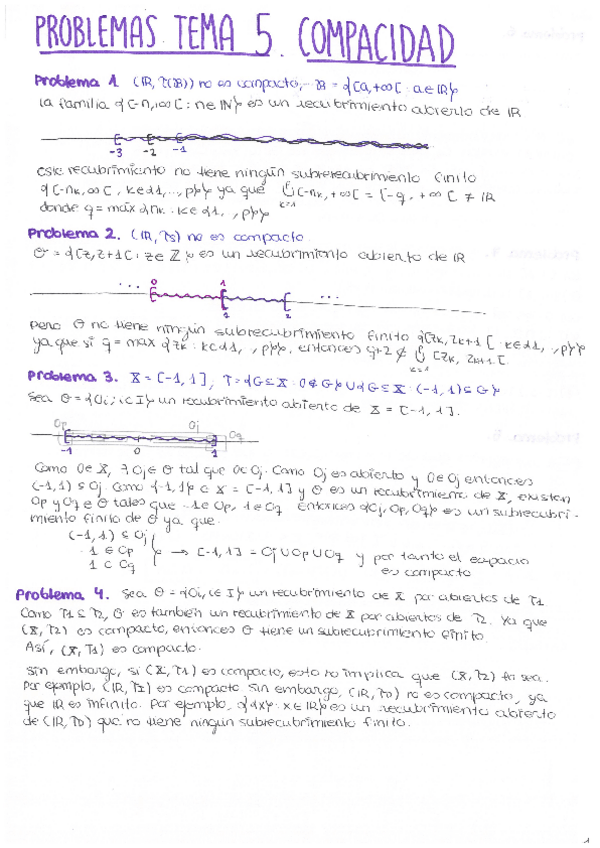 PROBLEMAS TEMA 5. COMPACIDAD
Problema 1. (ℝ, τ(B)) no es compacto, B = {[a, +∞[ : a∈ℝ}
La familia {[-n, ∞[ : n∈ℕ} es un recubrimiento abierto de ℝ
-3 -2 -1
este recubrimiento no tiene ningún subrecubrimiento finito
{[-nₖ, ∞[, k∈{1,..., p}} ya que ⋃ₖ₌₁ [-nₖ, +∞[ = [-q, +∞[ ≠ ℝ
donde q = máx{nₖ : k∈{1, , p}}
Problema 2. (ℝ, τs) no es compacto.
Θ = {[z, z+1[ : z∈ℤ} es un recubrimiento abierto de ℝ
... 0 1 ...
1 2
pero Θ no tiene ningún subrecubrimiento finito {[zₖ, zₖ+1[ : k∈{1, , p}}
ya que si q = max{zₖ : k∈{1, , p}}, entonces q+2 ∉ ⋃ₖ₌₁ [zₖ, zₖ+1[
Problema 3. X = [-1, 1], τ = {G⊆X : 0∉G} ∪ {G⊆X : (-1, 1)⊆G}
Sea Θ = {Oi, i∈I} un recubrimiento abierto de X = [-1, 1].
Op Oj Oq
-1 0 1
Como 0∈X, ∃ Oj∈Θ tal que 0∈Oj. Como Oj es abierto y 0∈Oj entonces
(-1, 1)⊆Oj. Como {-1, 1}⊂X = [-1, 1] y Θ es un recubrimiento de X, existen
Op y Oq∈Θ tales que -1∈Op, 1∈Oq. Entonces {Oj, Op, Oq} es un subrecubri-
miento finito de Θ ya que
(-1, 1)⊆Oj
-1∈Op → [-1, 1] = Oj∪Op∪Oq y por tanto el espacio
1∈Oq es compacto
Problema 4. Sea Θ = {Oi, i∈I} un recubrimiento de X por abiertos de τ1
Como τ1⊆τ2, Θ es también un recubrimiento de X por abiertos de τ2. Ya que
(X, τ2) es compacto, entonces Θ tiene un subrecubrimiento finito.
Así, (X, τ1) es compacto.
Sin embargo, si (X, τ1) es compacto, esto no implica que (X, τ2) lo sea.
Por ejemplo, (ℝ, τI) es compacto. Sin embargo, (ℝ, τD) no es compacto, ya
que ℝ es infinito. Por ejemplo, {{x} : x∈ℝ} es un recubrimiento abierto
de (ℝ, τD) que no tiene ningún subrecubrimiento finito.
1